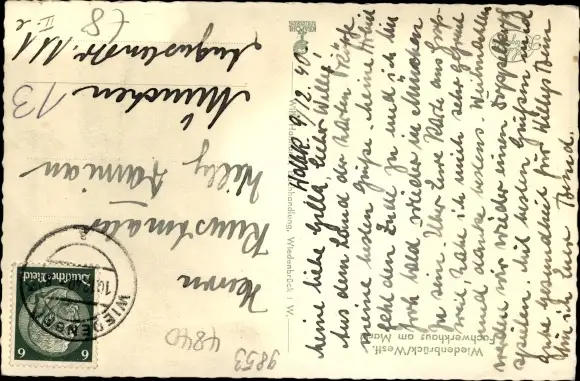 Herrn
Kunstmaler
Willy
München 13
Augustenstr.
Wiedenbrück/Westf.
Fachwerkhaus am Markt
Deutsches Reich
6 6
WIEDENBRÜCK
4840
9853
12. 40
Meine liebe Gella, lieber Willy!
Aus dem Land der harten
meine besten Grüße. Meine Arbeit
geht dem Ende zu und ich bin
froh bald wieder in München
zu sein. Über Eure Karte aus
habe ich mich sehr gefreut
und danke bestens. Weihnachten
werden wir wieder einen Doppelkopf
spielen. Mit besten Grüßen und
gute Gesundheit für Willys
bin ich Euer